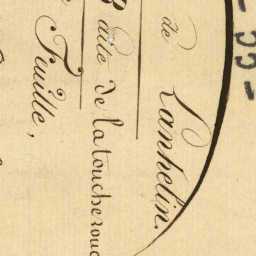 - 55 -
de Lanhelin.
dite de latoucherouc
Feuille,